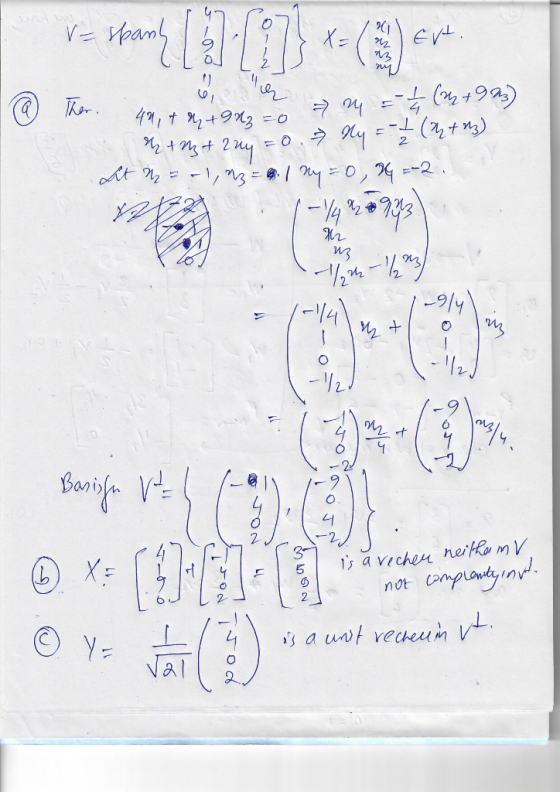 V = span{ [4 1 9 0] , [0 1 1 2] } X = (x1 x2 x3 x4) ∈ V⊥.
" v1 " v2
(a) Then. 4x1 + x2 + 9x3 = 0 ⇒ x1 = -1/4 (x2 + 9x3)
x2 + x3 + 2x4 = 0. ⇒ x4 = -1/2 (x2 + x3)
Let x2 = -1, x3 = 1 x4 = 0, x1 = -2.
(-1/4 x2 - 9/4 x3 x2 x3 -1/2 x2 - 1/2 x3)
= (-1/4 1 0 -1/2) x2 + (-9/4 0 1 -1/2) x3
= (-1 4 0 -2) x2/4 + (-9 0 4 -2) x3/4.
Basis for V⊥ = { (-1 4 0 2) , (-9 0 4 -2) } .
(b) X = [4 1 9 0] + [-1 4 0 2] = [3 5 9 2] is a vector neither in V
not completely in V⊥.
(c) Y = 1/√21 (-1 4 0 2) is a unit vector in V⊥.